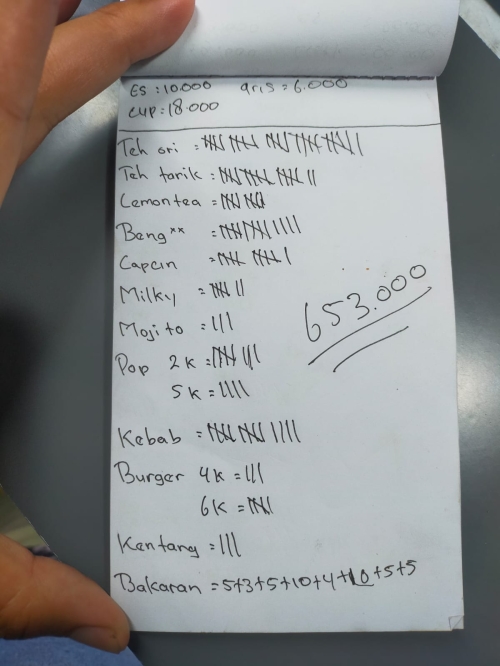 ES : 10.000 aris = 6.000
CUP = 18.000
Teh ori = |||| |||| |||| |||| |||| ||
Teh tarik = |||| |||| |||| ||
Lemon tea = |||| ||||
Beng** = |||| |||| ||||
Capcin = |||| |||| |
Milky = |||| ||
Mojito = |||
653.000
Pop 2K = |||| |||
5K = ||||
Kebab = |||| |||| ||||
Burger 4K = |||
6K = ||||
Kentang = |||
Bakaran = 5+3+5+10+4+10+5+5